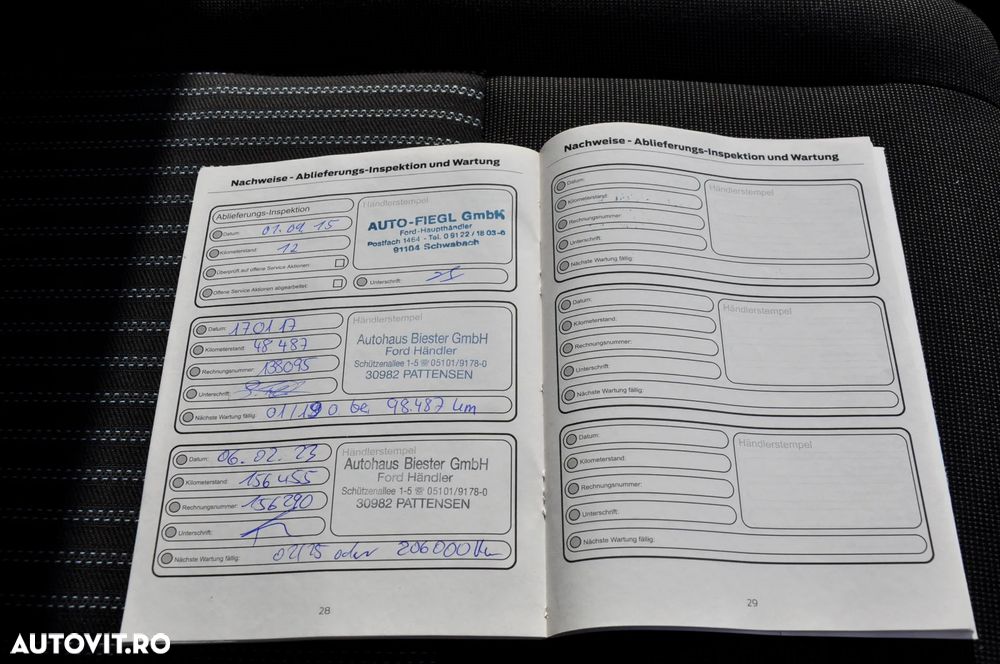 Nachweise - Ablieferungs-Inspektion und Wartung
Ablieferungs-Inspektion
Datum: 01.09.15
Kilometerstand: 12
Überprüft auf offene Service Aktionen:
Offene Service Aktionen abgearbeitet:
Händlerstempel
AUTO-FIEGL GmbH
Ford-Haupthändler
Postfach 1464 - Tel. 0 91 22 / 18 03-6
91104 Schwabach
Unterschrift:
Datum: 170117
Kilometerstand: 48 487
Rechnungsnummer: 138095
Unterschrift:
Händlerstempel
Autohaus Biester GmbH
Ford Händler
Schützenallee 1-5 ☏ 05101/9178-0
30982 PATTENSEN
Nächste Wartung fällig: 01/19 o bei 98.487 km
Datum: 06.02.23
Kilometerstand: 156455
Rechnungsnummer: 156290
Unterschrift:
Händlerstempel
Autohaus Biester GmbH
Ford Händler
Schützenallee 1-5 ☏ 05101/9178-0
30982 PATTENSEN
Nächste Wartung fällig: 02/25 oder 206000 km
28
Nachweise - Ablieferungs-Inspektion und Wartung
Datum:
Kilometerstand:
Rechnungsnummer:
Unterschrift:
Händlerstempel
Nächste Wartung fällig:
Datum:
Kilometerstand:
Rechnungsnummer:
Unterschrift:
Händlerstempel
Nächste Wartung fällig:
Datum:
Kilometerstand:
Rechnungsnummer:
Unterschrift:
Händlerstempel
Nächste Wartung fällig:
29
AUTOVIT.RO